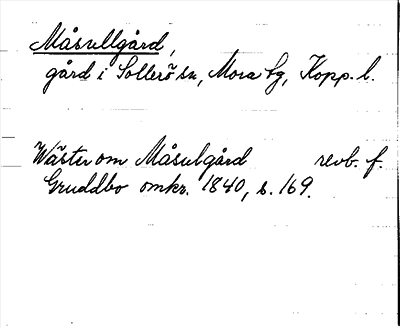 Måsullgård,
gård i Sollerö sn, Mora tg, Kopp. l.
Wäster om Måsulgård revb. f.
Gruddbo omkr. 1840, s. 169.